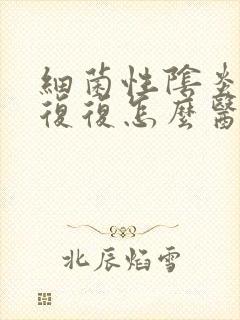 細菌性陰炎
復復怎麼醫
北辰焰雪